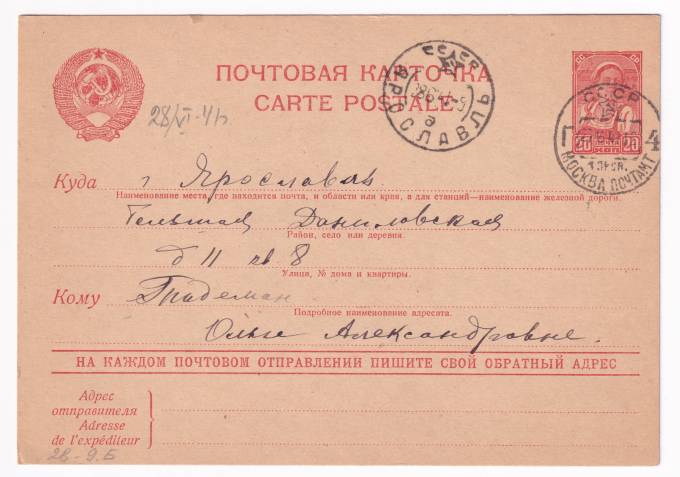 ПОЧТОВАЯ КАРТОЧКА
CARTE POSTALE
СССР
ЯРОСЛАВЛЬ
СССР
МОСКВА ПОЧТАМТ
Г 4
20 20
КОП
28/VI-41
Куда г Ярославль
Наименование места, где находится почта, и области или края, а для станций—наименование железной дороги.
Даниловская
Район, село или деревня.
д 11 кв 8
Улица, № дома и квартиры.
Кому
Подробное наименование адресата.
Ольге Александровне.
НА КАЖДОМ ПОЧТОВОМ ОТПРАВЛЕНИИ ПИШИТЕ СВОЙ ОБРАТНЫЙ АДРЕС
Адрес
отправителя
Adresse
de l'expéditeur
28-9.Б